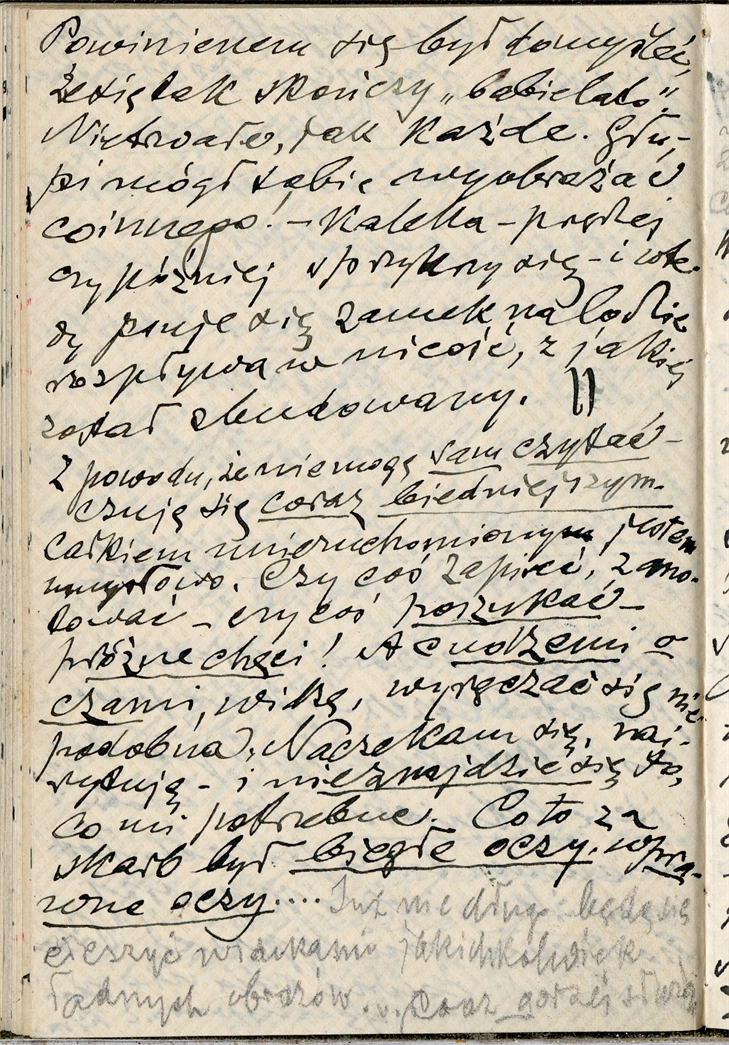 Powinienem się był domyśleć,
że się tak skończy „babie lato".
Nie trwało, jak każde. Głu-
pi mógł sobie wyobrażać
co innego! – Kaleka – prędzej
czy później sprzykrzy się – i wte-
dy psuje się zamek na lodzie
rozpływa w nicość, z jakiej
został zbudowany.
Z powodu, że nie mogę sam czytać –
czuję się coraz biedniejszym.
Całkiem unieruchomionym jestem
umysłowo. Czy coś zapisać, zano-
tować – czy coś poszukać –
próżne chęci! A cudzemi o-
czami, widzę, wyręczać się nie
podobna. Naczekam się, nai-
rytuję – i nie znajdzie się to,
co mi potrzebne. Co to za
skarb był biegłe oczy, wpra-
wne oczy....Już nie długo będę się
cieszyć widokami jakichkolwiek
ładnych obrazów... Coraz gorzej